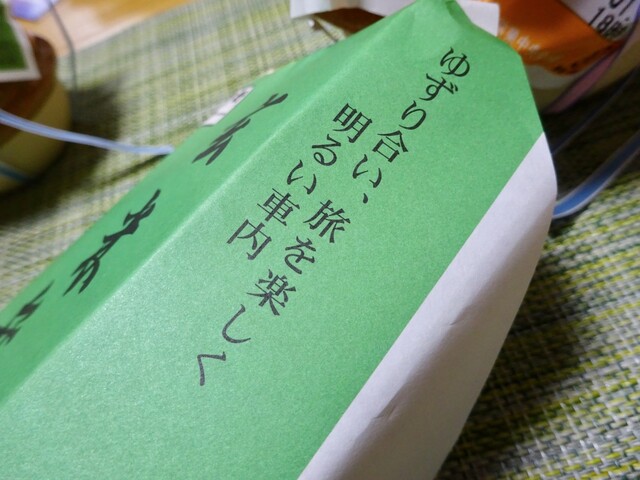 ゆずり合い、旅を楽しく
明るい車内